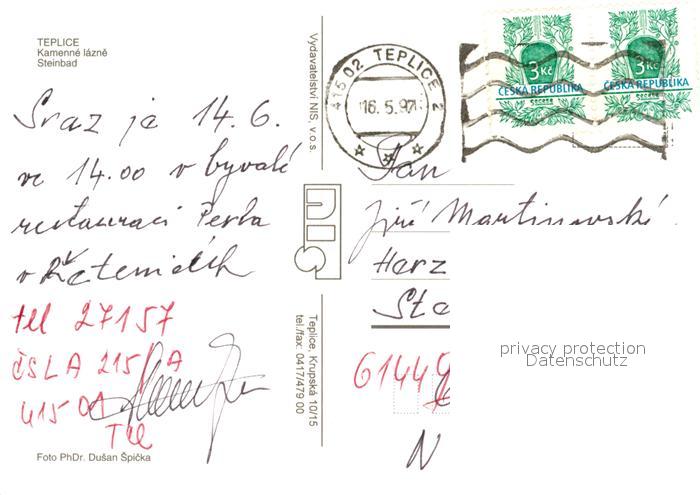 TEPLICE
Kamenné lázně
Steinbad
Sraz je 14. 6.
ve 14.00 v bývalé
restauraci Perla
v Řetenicích
tel 27157
ČSLA 215/A
415 01
Foto PhDr. Dušan Špička
Vydavatelství NIS, v.o.s.
NIS
Teplice, Krupská 10/15
tel./fax: 0417/479 00
415 02 TEPLICE 2
16.5.97
3 Kč
ČESKÁ REPUBLIKA
secese
3 Kč
ČESKÁ REPUBLIKA
secese
Pan
Jiří
Herz
Ste
6144
N
privacy protection
Datenschutz